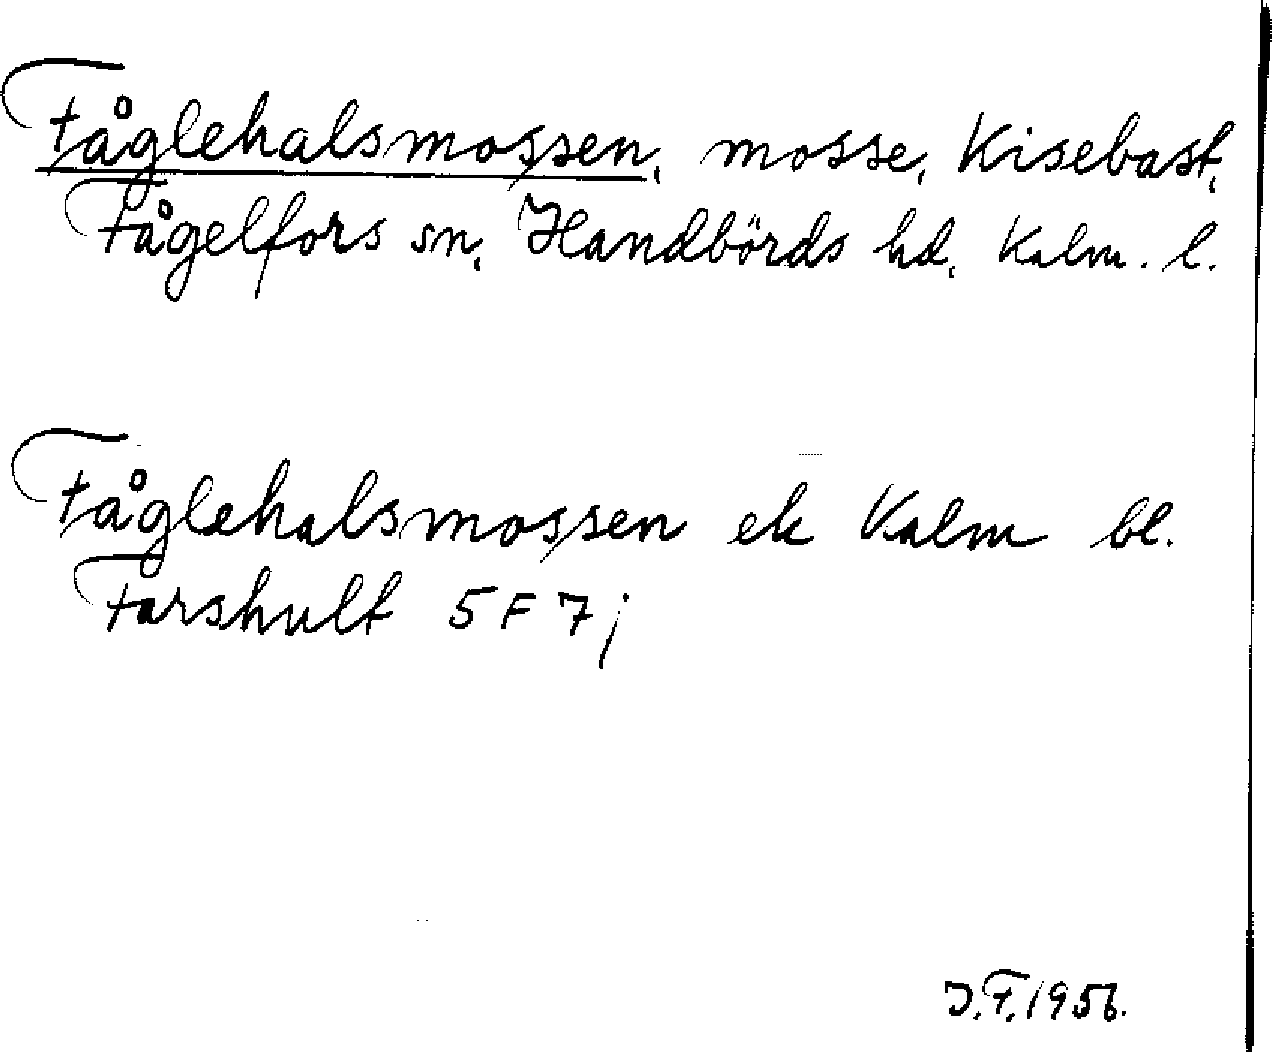 Fåglehalsmossen, mosse, Kisebast,
Fågelfors sn, Handbörds hd, Kalm. l.
Fåglehalsmossen ek Kalm bl.
Farshult 5F7j
J.F. 1956.